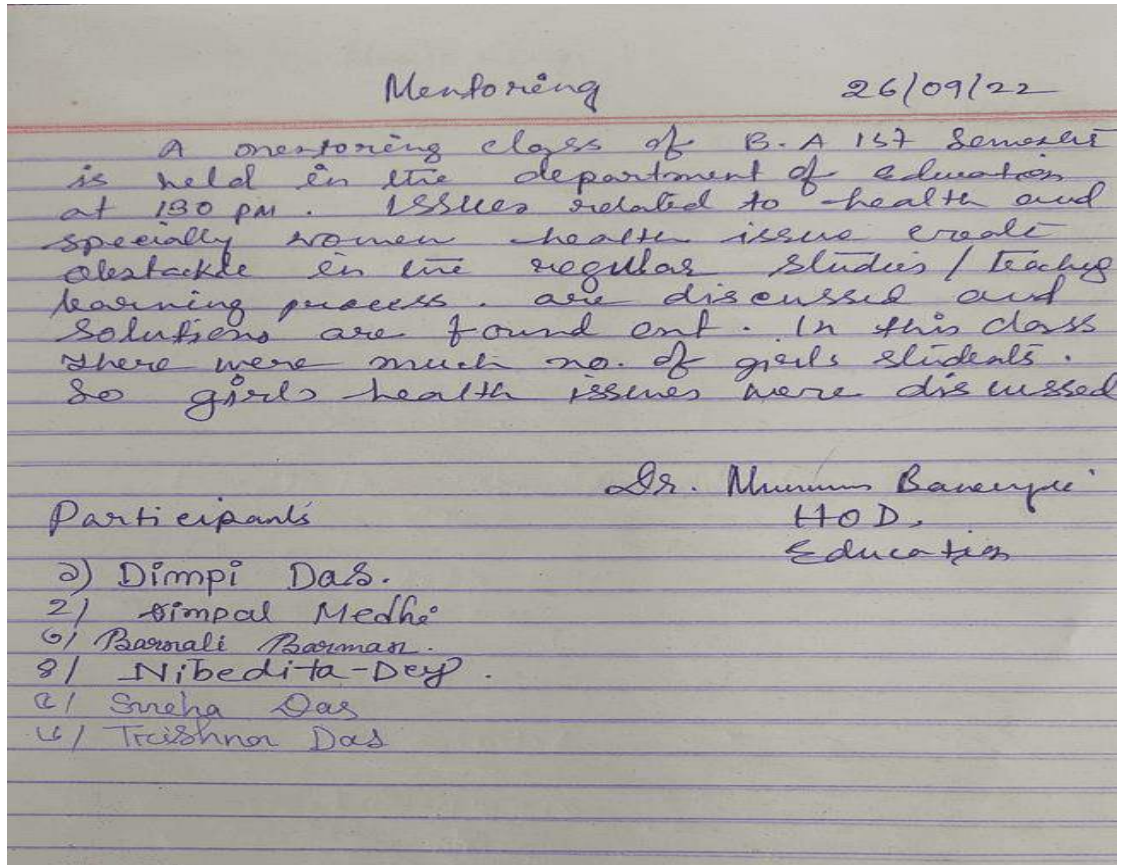 Mentoring 26/09/22
A mentoring class of B.A 1st Semester
is held in the department of education
at 130 PM. Issues related to health and
specially women health issue create
obstackde in the regular studies / teaching
learning process. are discussed and
solutions are found out. In this class
there were much no. of girls students.
So girls health issues were discussed
Dr. Banerjee
Participants HOD.
Education
১) Dimpi Das.
২) Dimpal Medhi
৩) Barnali Barman.
৪) Nibedita-Dey.
৫) Sneha Das
৬) Trishna Das